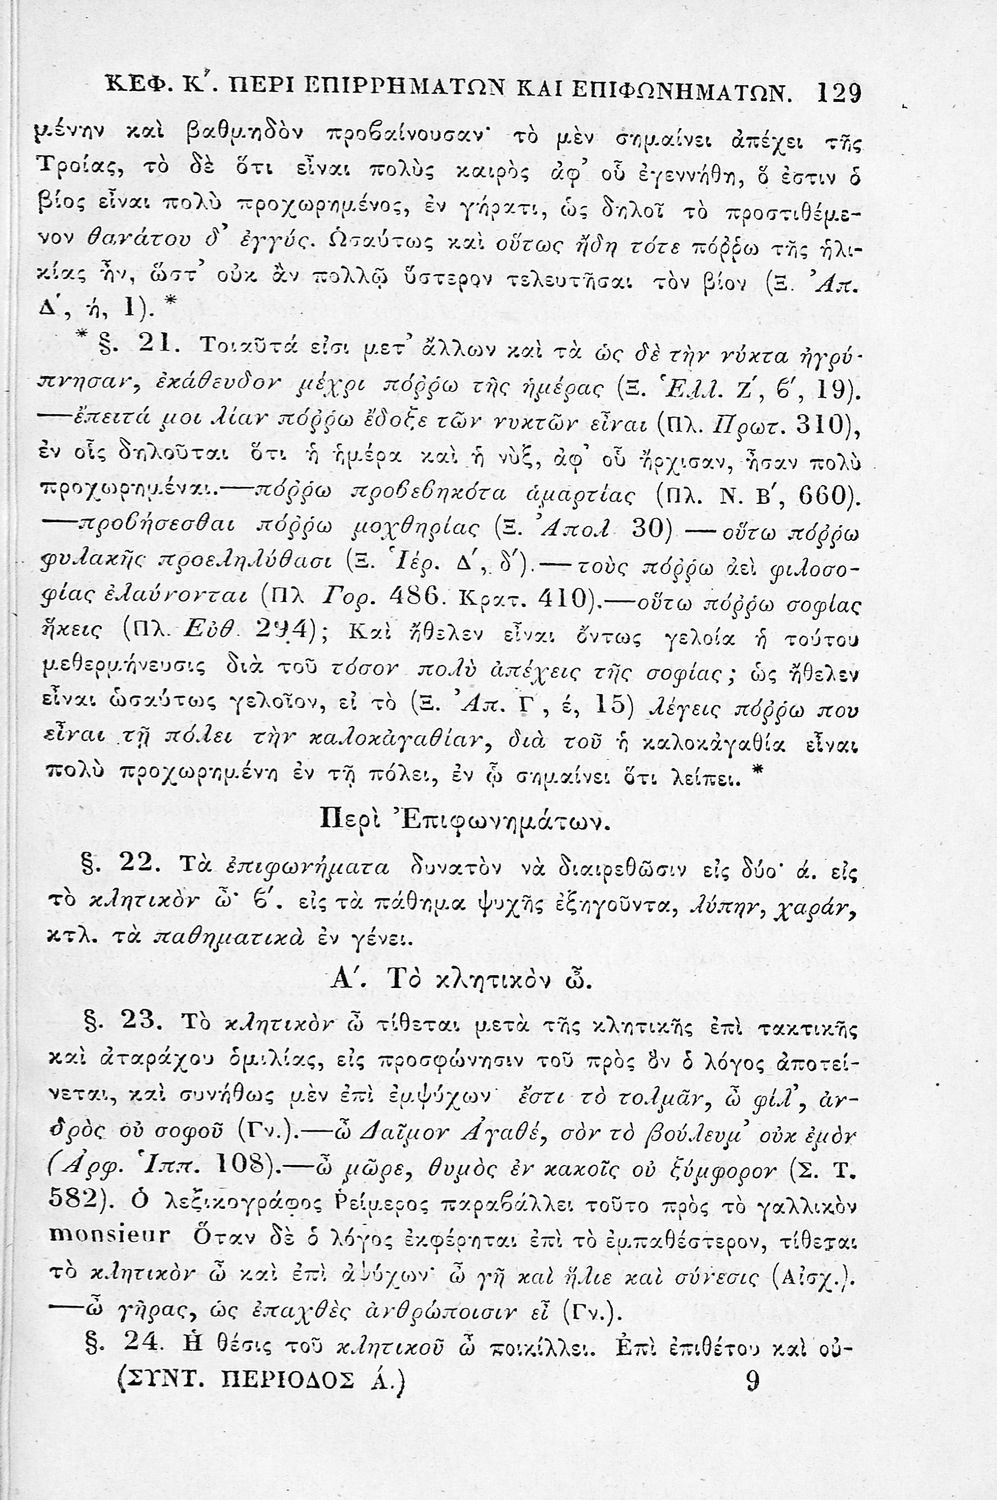 ΚΕΦ. Κ΄. ΠΕΡΙ ΕΠΙΡΡΗΜΑΤΩΝ ΚΑΙ ΕΠΙΦΩΝΗΜΑΤΩΝ. 129
μένην καὶ βαθμηδὸν προβαίνουσαν· τὸ μὲν σημαίνει ἀπέχει τῆς
Τροίας, τὸ δὲ ὅτι εἶναι πολὺς καιρὸς ἀφ' οὗ ἐγεννήθη, ὅ ἐστιν ὁ
βίος εἶναι πολὺ προχωρημένος, ἐν γήρατι, ὡς δηλοῖ τὸ προστιθέμε-
νον θανάτου δ' ἐγγύς. Ὡσαύτως καὶ οὕτως ἤδη τότε πόῤῥω τῆς ἡλι-
κίας ἦν, ὥστ' οὐκ ἂν πολλῷ ὕστερον τελευτῆσαι τὸν βίον (Ξ. Ἀπ.
Δ΄, ή, 1). *
* §. 21. Τοιαῦτά εἰσι μετ' ἄλλων καὶ τὰ ὡς δὲ τὴν νύκτα ἠγρύ-
πνησαν, ἐκάθευδον μέχρι πόῤῥω τῆς ἡμέρας (Ξ. Ἑλλ. Ζ΄, ϐ΄, 19).
—ἔπειτά μοι λίαν πόῤῥω ἔδοξε τῶν νυκτῶν εἶναι (Πλ. Πρωτ. 310),
ἐν οἷς δηλοῦται ὅτι ἡ ἡμέρα καὶ ἡ νὺξ, ἀφ' οὗ ἤρχισαν, ἦσαν πολὺ
προχωρημέναι.—πόῤῥω προβεβηκότα ἁμαρτίας (Πλ. Ν. Β΄, 660).
—προβήσεσθαι πόῤῥω μοχθηρίας (Ξ. Ἀπολ 30) — οὕτω πόῤῥω
φυλακῆς προεληλύθασι (Ξ. Ἱέρ. Δ΄, δ΄).—τοὺς πόῤῥω ἀεὶ φιλοσο-
φίας ἐλαύνονται (Πλ Γορ. 486. Κρατ. 410).—οὕτω πόῤῥω σοφίας
ἥκεις (Πλ. Εὐθ. 294); Καὶ ἤθελεν εἶναι ὄντως γελοία ἡ τούτου
μεθερμήνευσις διὰ τοῦ τόσον πολὺ ἀπέχεις τῆς σοφίας; ὡς ἤθελεν
εἶναι ὡσαύτως γελοῖον, εἰ τὸ (Ξ. Ἀπ. Γ , έ, 15) λέγεις πόῤῥω που
εἶναι τῇ πόλει τὴν καλοκἀγαθίαν, διὰ τοῦ ἡ καλοκἀγαθία εἶναι
πολὺ προχωρημένη ἐν τῇ πόλει, ἐν ᾧ σημαίνει ὅτι λείπει. *
Περὶ Ἐπιφωνημάτων.
§. 22. Τὰ ἐπιφωνήματα δυνατὸν νὰ διαιρεθῶσιν εἰς δύο· ά. εἰς
τὸ κλητικὸν ὦ· ϐ΄. εἰς τὰ πάθημα ψυχῆς ἐξηγοῦντα, λύπην, χαράν,
κτλ. τὰ παθηματικὰ ἐν γένει.
Α΄. Τὸ κλητικὸν ὦ.
§. 23. Τὸ κλητικὸν ὦ τίθεται μετὰ τῆς κλητικῆς ἐπὶ τακτικῆς
καὶ ἀταράχου ὁμιλίας, εἰς προσφώνησιν τοῦ πρὸς ὃν ὁ λόγος ἀποτεί-
νεται, καὶ συνήθως μὲν ἐπὶ ἐμψύχων· ἔστι τὸ τολμᾶν, ὦ φίλ', ἀν-
δρὸς οὐ σοφοῦ (Γν.).—ὦ Δαῖμον Ἀγαθέ, σὸν τὸ βούλευμ' οὐκ ἐμὸν
(Ἀρφ. Ἱππ. 108).—ὦ μῶρε, θυμὸς ἐν κακοῖς οὐ ξύμφορον (Σ. Τ.
582). Ὁ λεξικογράφος Ῥείμερος παραβάλλει τοῦτο πρὸς τὸ γαλλικὸν
monsieur Ὅταν δὲ ὁ λόγος ἐκφέρηται ἐπὶ τὸ ἐμπαθέστερον, τίθεται
τὸ κλητικὸν ὦ καὶ ἐπὶ ἀψύχων· ὦ γῆ καὶ ἥλιε καὶ σύνεσις (Αἰσχ.).
—ὦ γῆρας, ὡς ἐπαχθὲς ἀνθρώποισιν εἶ (Γν.).
§. 24. Ἡ θέσις τοῦ κλητικοῦ ὦ ποικίλλει. Ἐπὶ ἐπιθέτου καὶ οὐ-
(ΣΥΝΤ. ΠΕΡΙΟΔΟΣ Ά.) 9